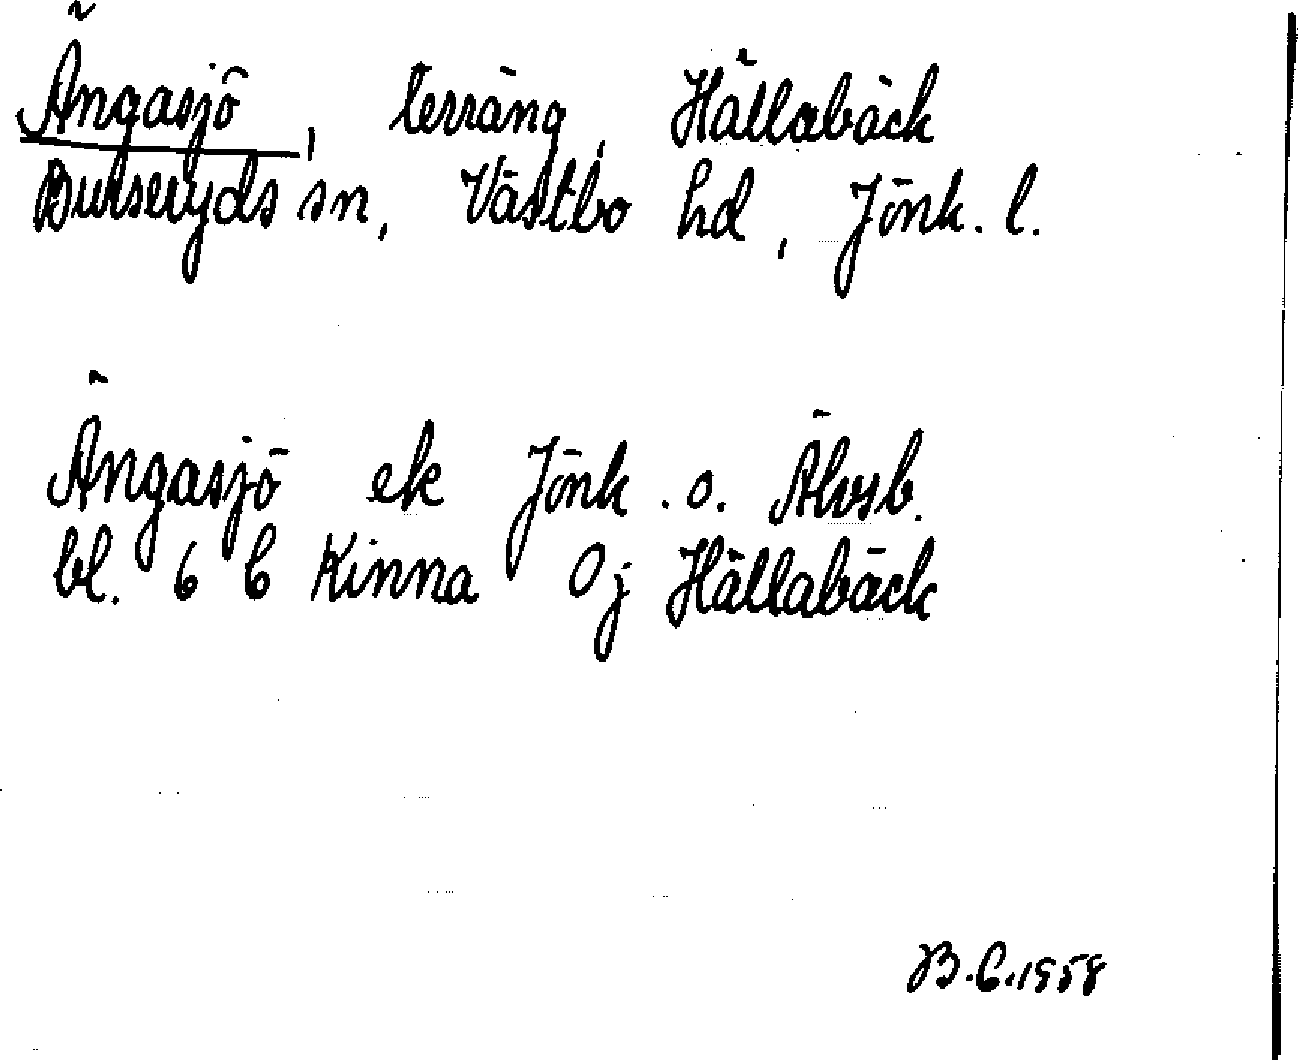 Ängasjö, terräng, Hällabäck
Burseryds sn, Västbo hd, Jönk. l.
Ängasjö ek Jönk. o. Älvsb.
bl. 6 C Kinna 0j Hällabäck
B.C.1958